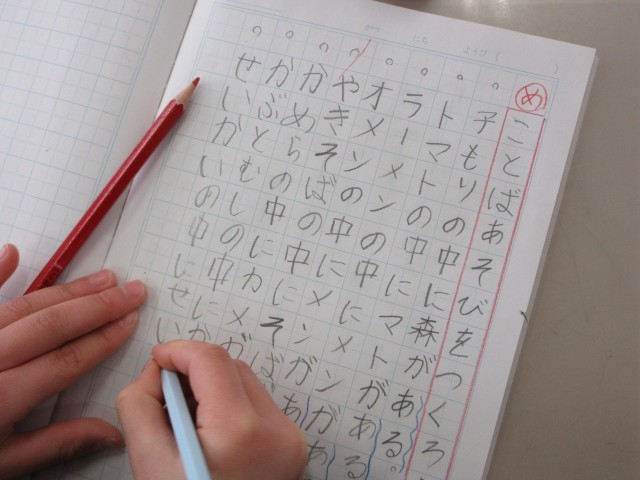 がつ にち ようび ( )
め ことばあそびをつくろ
。子もりの中に森がある。
。トマトの中にマトがある
。ラーメンの中にメンがあ
。オメンの中にメンがあ
。やきそばの中にそば
。かめらの中にカメが
。かぶとむしの中にか
。せいかいの中にせい